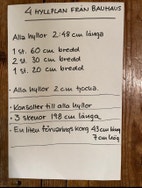 4 HYLLPLAN FRÅN BAUHAUS
Alla hyllor 2.48 cm långa
1 st. 60 cm bredd
2 st. 30 cm bredd
1 st. 20 cm bredd
· Alla hyllor 2 cm tjocka.
· Konsolter till alla hyllor
· 3 skenor 198 cm långa
· En liten förvarings korg 43 cm lång
7 cm hög